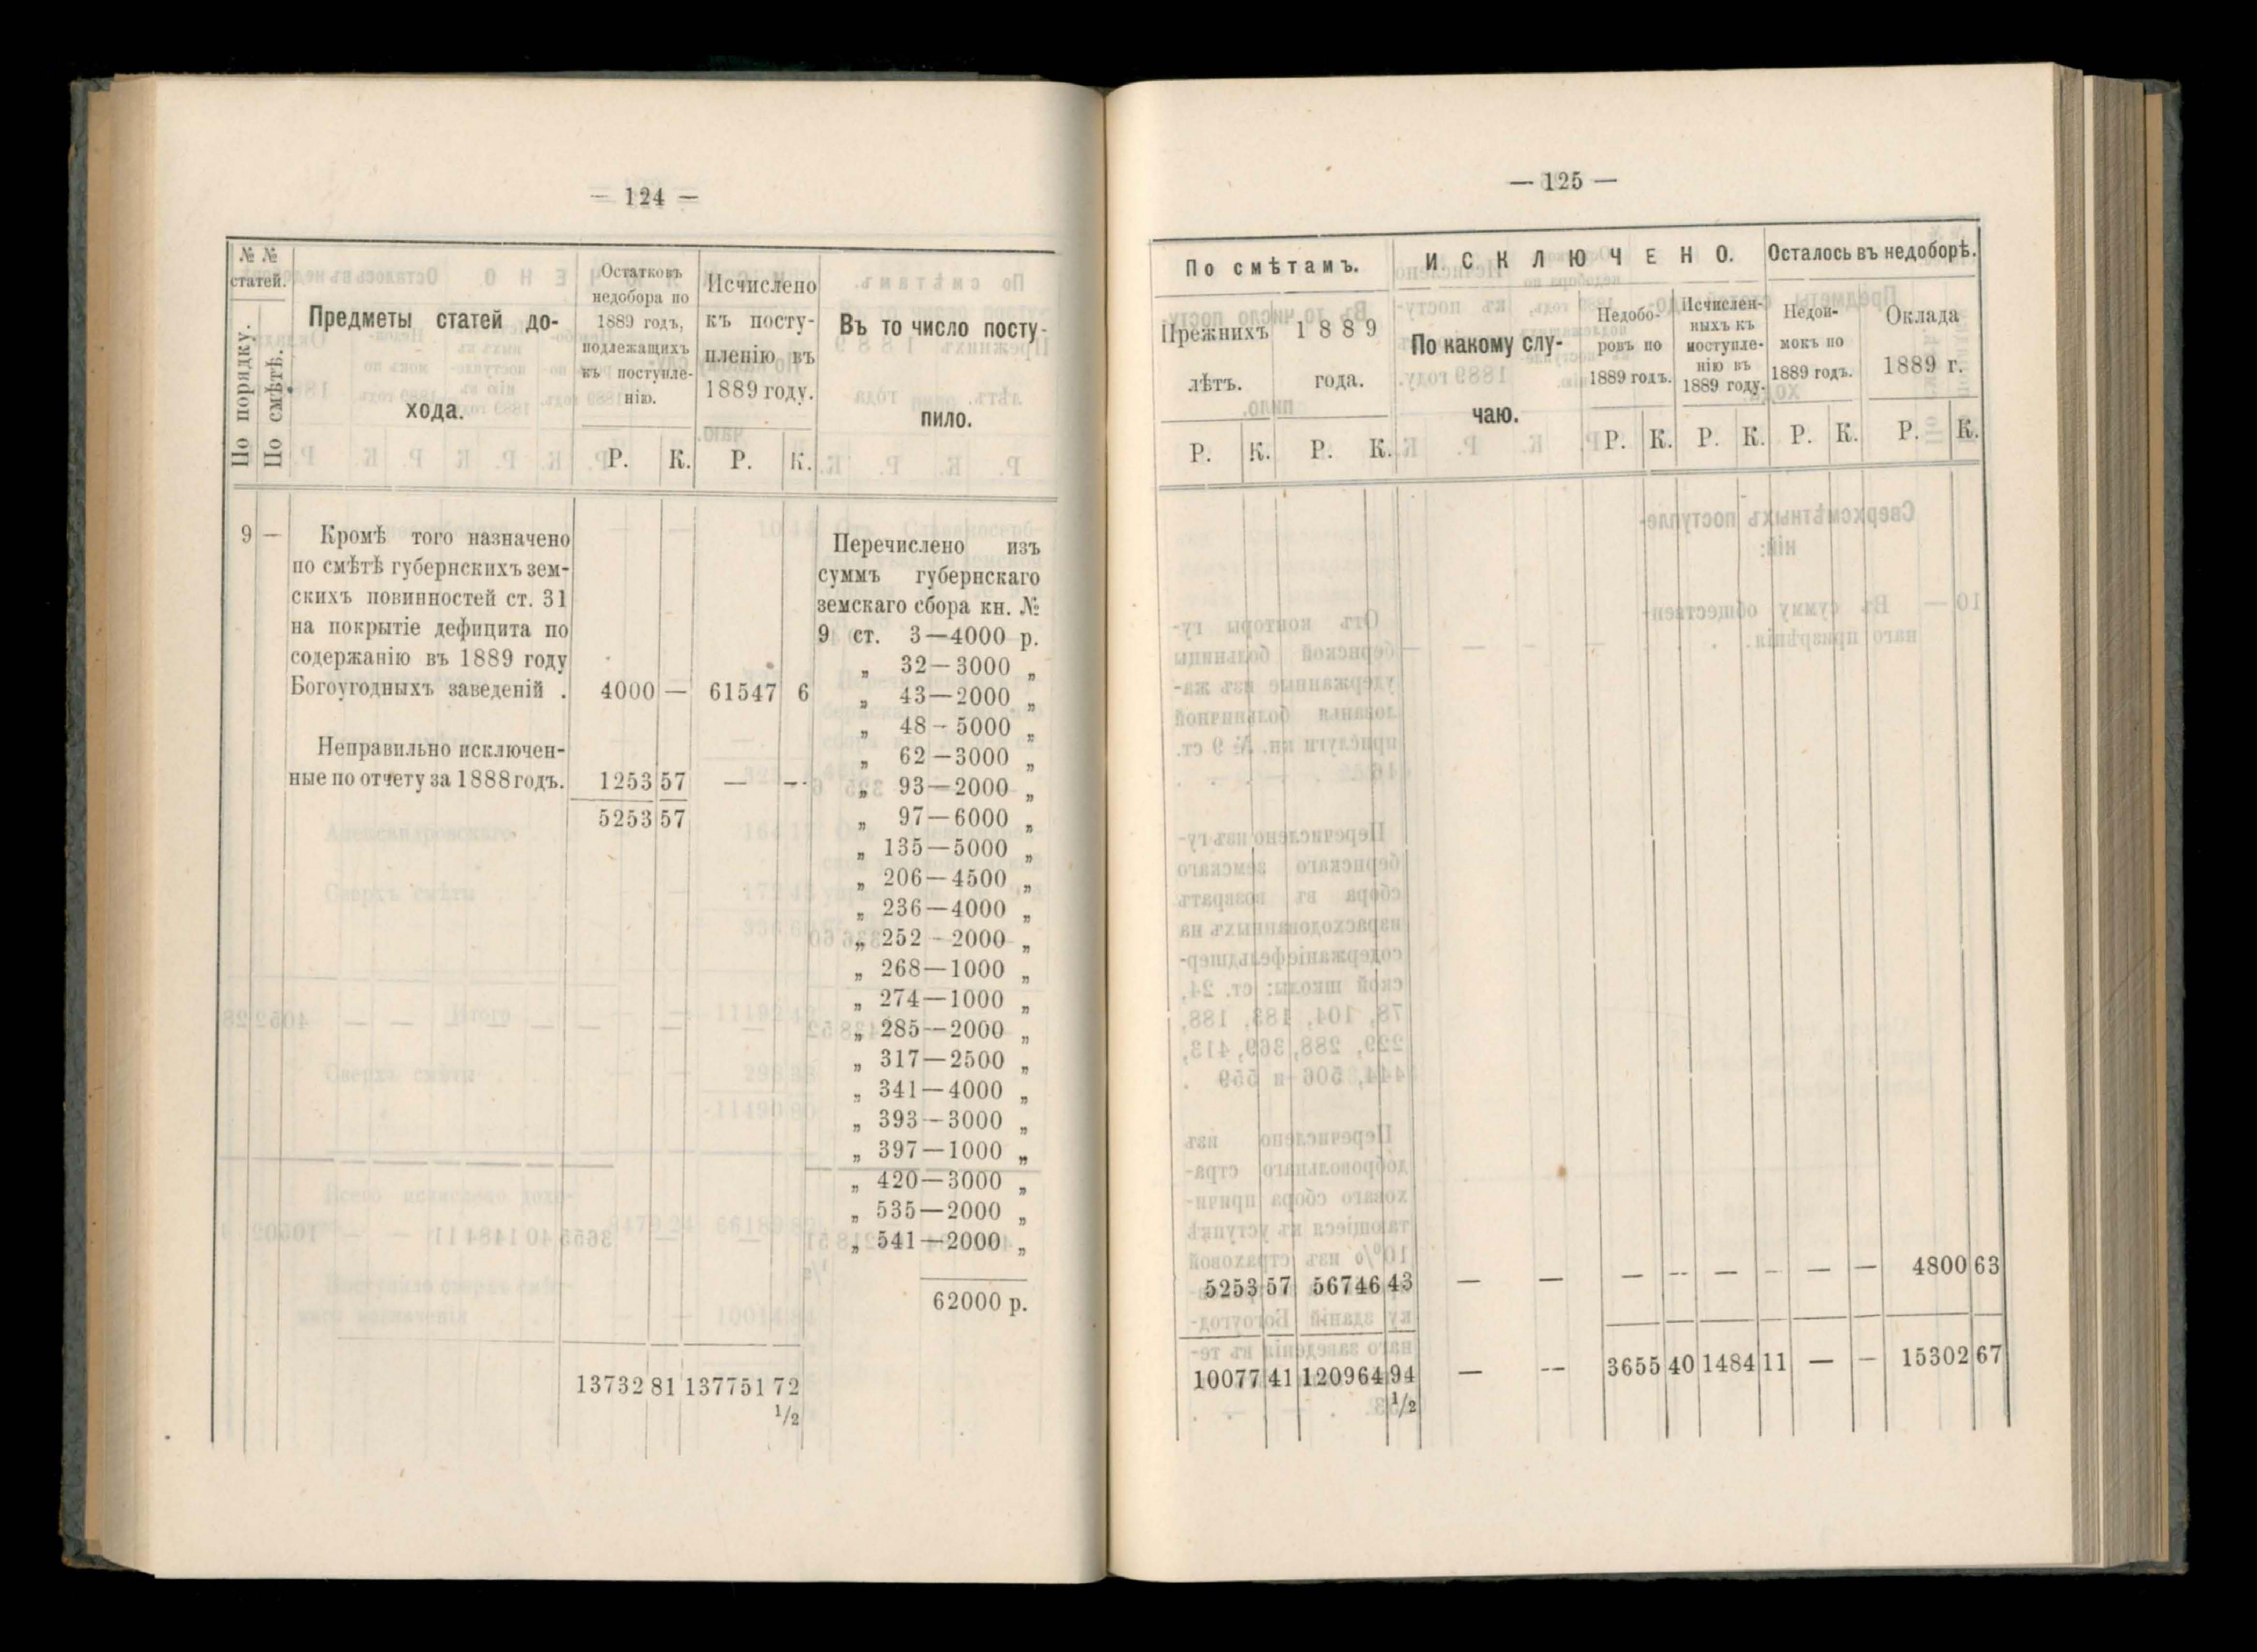 — 124 —
№ №
статей.
По порядку.
По смѣтѣ.
Предметы статей до-
хода.
Остатковъ
недобора по
1889 годъ,
подлежащихъ
къ поступле-
нію.
Исчислено
къ посту-
пленію въ
1889 году.
Въ то число посту-
пило.
Р. К. Р. К.
9 — Кромѣ того назначено
по смѣтѣ губернскихъ зем-
скихъ повинностей ст. 31
на покрытіе дефицита по
содержанію въ 1889 году
Богоугодныхъ заведеній . 4000 — 61547 6
Неправильно исключен-
ные по отчету за 1888 годъ. 1253 57 — —
5253 57
Перечислено изъ
суммъ губернскаго
земскаго сбора кн. №
9 ст. 3—4000 р.
„ 32—3000 „
„ 43—2000 „
„ 48—5000 „
„ 62—3000 „
„ 93—2000 „
„ 97—6000 „
„ 135—5000 „
„ 206—4500 „
„ 236—4000 „
„ 252—2000 „
„ 268—1000 „
„ 274—1000 „
„ 285—2000 „
„ 317—2500 „
„ 341—4000 „
„ 393—3000 „
„ 397—1000 „
„ 420—3000 „
„ 535—2000 „
„ 541—2000 „
62000 р.
13732 81 137751 72
1/2
— 125 —
По смѣтамъ.
Прежнихъ
лѣтъ.
1889
года.
ИСКЛЮЧЕНО.
По какому слу-
чаю.
Недобо-
ровъ по
1889 годъ.
Исчислен-
ныхъ къ
поступле-
нію въ
1889 году.
Осталось въ недоборѣ.
Недои-
мокъ по
1889 годъ.
Оклада
1889 г.
Р. К. Р. К. Р. К. Р. К. Р. К. Р. К.
5253 57 56746 43 — — — — — — — — 4800 63
10077 41 120964 94 — — 3655 40 1484 11 — — 15302 67
1/2